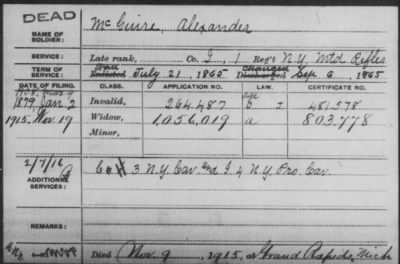 DEAD
NAME OF SOLDIER: McGuire, Alexander
SERVICE: Late rank, Co. I, 1 Reg't N.Y. Mtd Rifles
TERM OF SERVICE: Enlisted July 21, 1865 Discharged Sep. 6, 1865
DATE OF FILING. CLASS. APPLICATION NO. LAW. CERTIFICATE NO.
1879 Jan 2 Invalid, 264.487 481.578
1915, Nov. 19 Widow, 1,056,019 a 803.778
Minor,
2/7/16
ADDITIONAL SERVICES: 3 N.Y. Cav. and I 4 N.Y. Pro. Cav.
REMARKS:
Died Nov. 9, 1915, at Grand Rapids, Mich